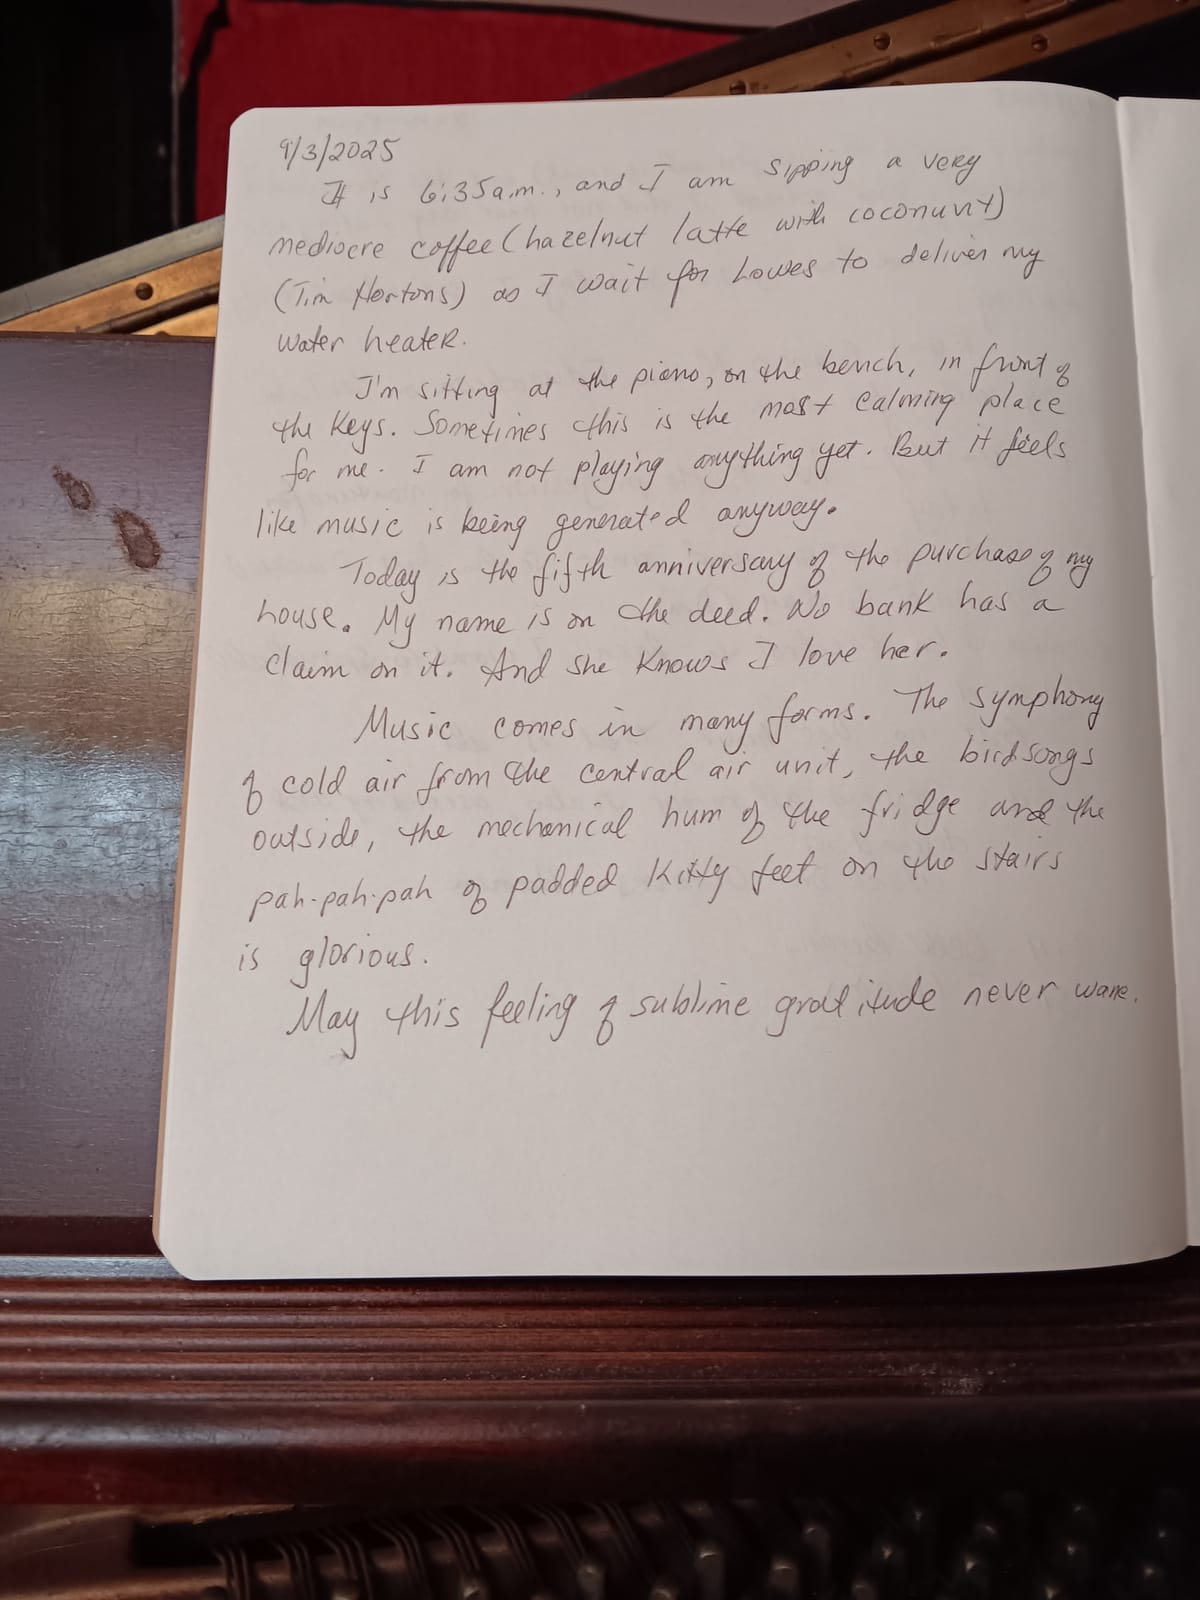 9/3/2025
It is 6:35a.m., and I am sipping a very
mediocre coffee (hazelnut latte with coconunt)
(Tim Hortons) as I wait for Lowes to deliver my
water heater.
I'm sitting at the piano, on the bench, in front of
the keys. Sometimes this is the most calming place
for me. I am not playing anything yet. But it feels
like music is being generated anyway.
Today is the fifth anniversary of the purchase of my
house. My name is on the deed. No bank has a
claim on it. And she knows I love her.
Music comes in many forms. The symphony
of cold air from the central air unit, the birdsongs
outside, the mechanical hum of the fridge and the
pah-pah-pah of padded kitty feet on the stairs
is glorious.
May this feeling of sublime gratitude never wane.